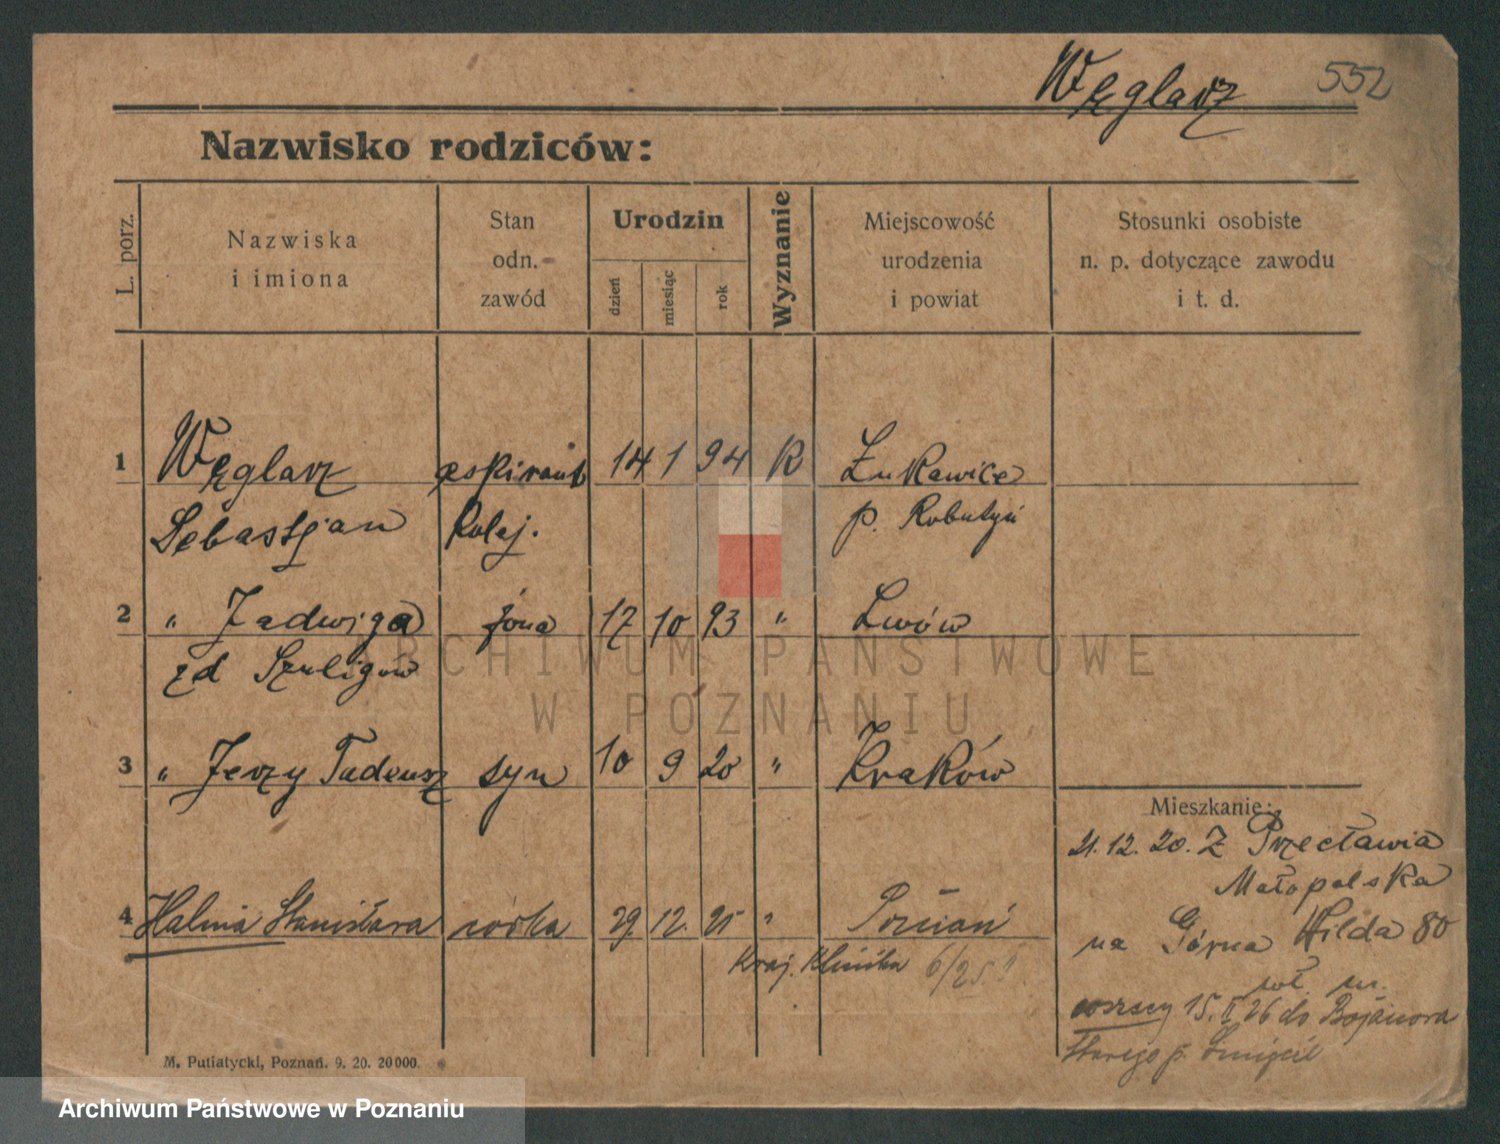 Węglarz 552
Nazwisko rodziców:
L. porz.
Nazwiska
i imiona
Stan
odn.
zawód
Urodzin
dzień
miesiąc
rok
Wyznanie
Miejscowość
urodzenia
i powiat
Stosunki osobiste
n. p. dotyczące zawodu
i t. d.
1 Węglarz aspirant 14 1 94 K Łukawice
Sebastjan kolej. p.
2 " Jadwiga żona 17 10 93 " Lwów
zd Szuligów
ARCHIWUM PAŃSTWOWE
W POZNANIU
3 " Jerzy Tadeusz syn 10 9 20 " Kraków
Mieszkanie:
21.12.20. Z Przecławia
Małopolska
4 Halina Stanisława córka 29. 12. 25 " Poznań
na Górna Wilda 80
Kraj. Klinika 6/25
wł. m.
wszscy 15. II 26 do Bojanowa
Starego p. Śmigiel
M. Putiatycki, Poznań. 9. 20. 20000.
Archiwum Państwowe w Poznaniu